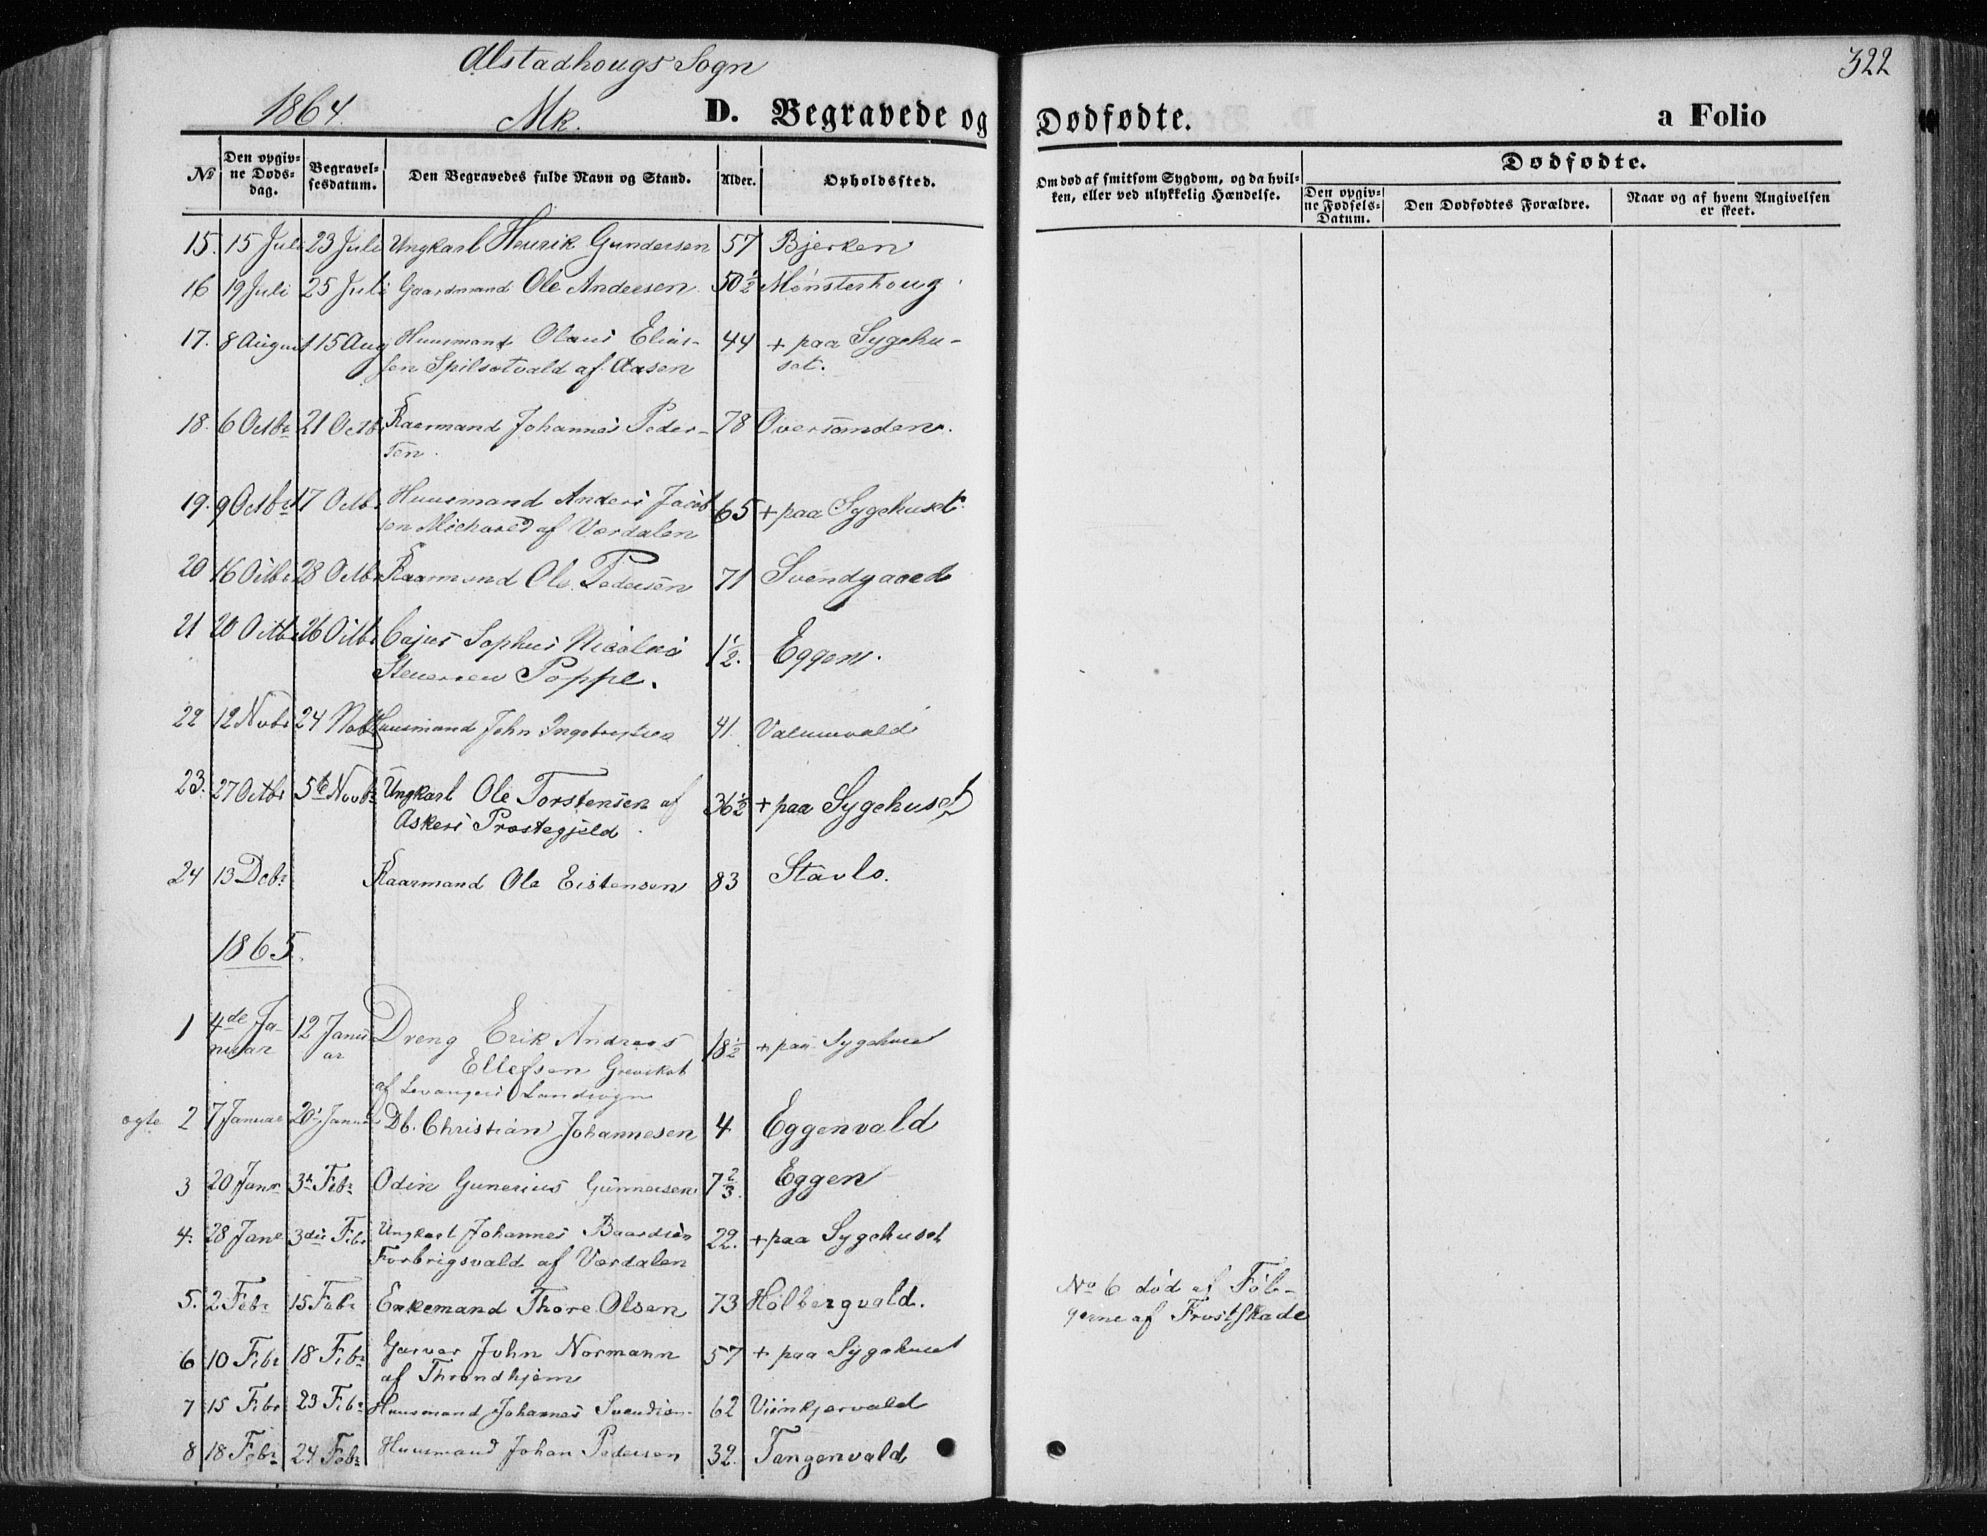 Alstadhougs Sogn
1864. Mk. D. Begravede og
№ Den opgivne Dødsdag. Begravelsesdatum. Den Begravedes fulde Navn og Stand. Alder. Opholdssted.
15. 15 Juli 23 Juli Ungkarl Henrik Gundersen 57 Bjerken
16 19 Juli 25 Juli Gaardmand Ole Andersen. 50½ Mønsterhoug
17. 8 August 15 Aug Huusmand Olaus Elias- 44 + paa Sygehu-
sen Spilsetvald af Aasen set.
18. 6 Octbr 21 Octb Kaarmand Johannes Peder- 78 Oversanden.
sen.
19. 9 Octbr 17 Octb Huusmand Anders Jacob 65 + paa Sygehuset.
sen af Værdalen
20 16 Octbr 28 Octb Kaarmand Ole Pedersen 71 Svendgaard
21 20 Octb 26 Octb Cajus Sophus Nicolai 1½. Eggen.
Steuersen Poppe.
22 12 Nvbr 24 Novb Huusmand John Ingebrigtsen 41. Valumvald
23. 27 Octbr 5te Novbr Ungkarl Ole Torstensen af 36½ + paa Sygehuset
Askers Præstegjeld
24 13 Decbr Kaarmand Ole Eistensen 83 Stavlo.
1865.
1 4de Ja- 12 Janu Dreng Erik Andreas 18½ + paa Sygehuset
nuar ar Ellefsen Grevskot
af Levangers Landsogn
ægte 2 7 Januar 20 Januar Db. Christian Johannesen 4 Eggenvald
3 20 Janr 3e Febr Odin Gunerius Gunnersen 7⅔. Eggen
4. 28 Janr 3die Febr Ungkarl Johannes Baardsen 22. + paa Sygehuset
Forbrigsvald af Værdalen
5. 2 Febr 15 Febr Enkemand Thore Olsen 73 Holbergvald.
6 10 Febr 18 Febr Garver John Normann 57 + paa Sygehuset
af Throndhjem
7 15 Febr 23 Febr Huusmand Johannes Svendsen 62
8 18 Febr 24 Febr Huusmand Johan Pedersen 32. Tangenvald
322
Dødfødte. a Folio
Om død af smitsom Sygdom, og da hvil-
ken, eller ved ulykkelig Hændelse.
Dødfødte.
Den opgivne Fødsels-Datum. Den Dødfødtes Forældre. Naar og af hvem Angivelsen er skeet.
No 6 død af Føl-
gerne af Frostskade